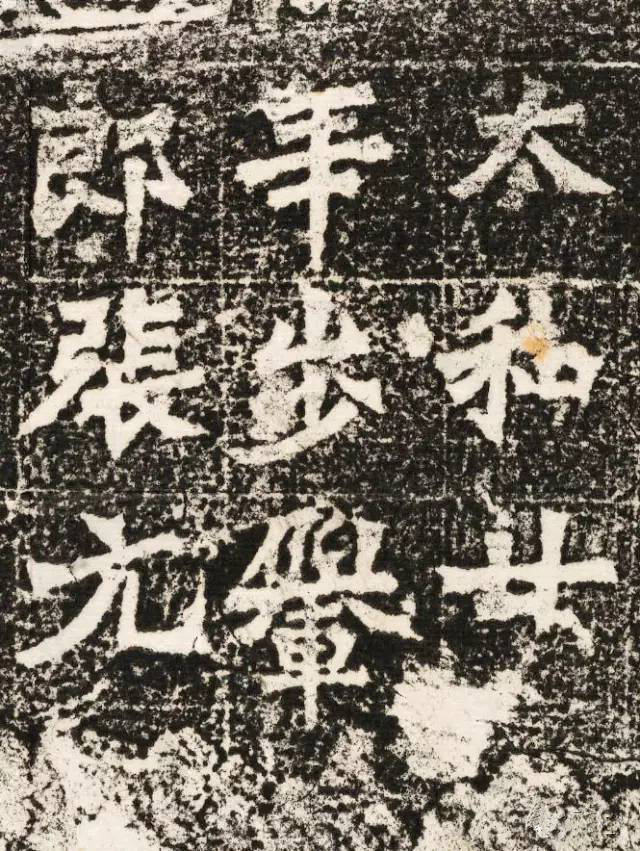 太和廿
年步轝
郎張元